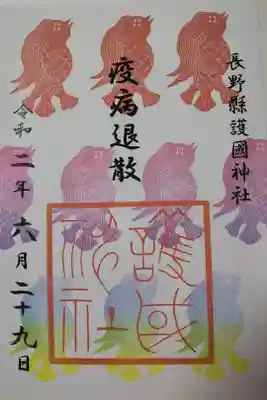 長野縣護國神社
疫病退散
令和二年六月二十九日
護国
神社